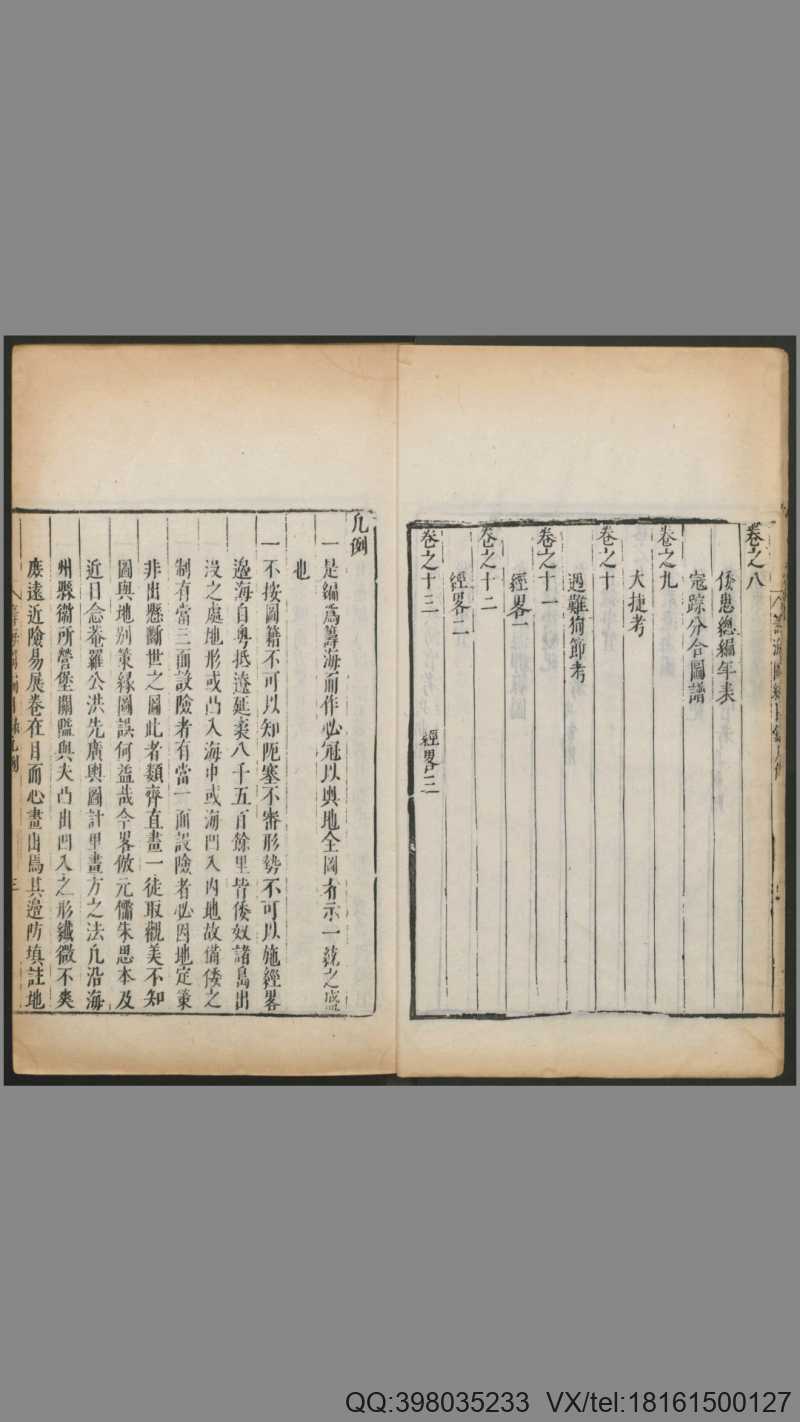 卷之八
倭患總編年表
寇踪分合圖譜
卷之九
大捷考
卷之十
遇難殉節考
卷之十一
經畧一
卷之十二
經畧二
卷之十三
經畧三
凡例
一是編為籌海而作必冠以輿地全圖者示一統之盛
也
一不按圖籍不可以知阨塞不審形勢不可以施經畧
邊海自粤抵遼延袤八千五百餘里皆倭奴諸島出
沒之處地形或凸入海中或海凹入內地故備倭之
制有當三面設險者有當一面設險者必因地定策
非出懸斷世之圖此者類齊直畫一徒取觀美不知
圖與地別策緣圖誤何益哉今畧倣元儒朱思本及
近日念菴羅公洪先廣輿圖計里畫方之法凡沿海
州縣衞所營堡關隘與夫凸出凹入之形纖微不爽
庶遠近險易展卷在目而心畫出焉其邊防填註地
三
QQ:398035233 VX/tel:18161500127